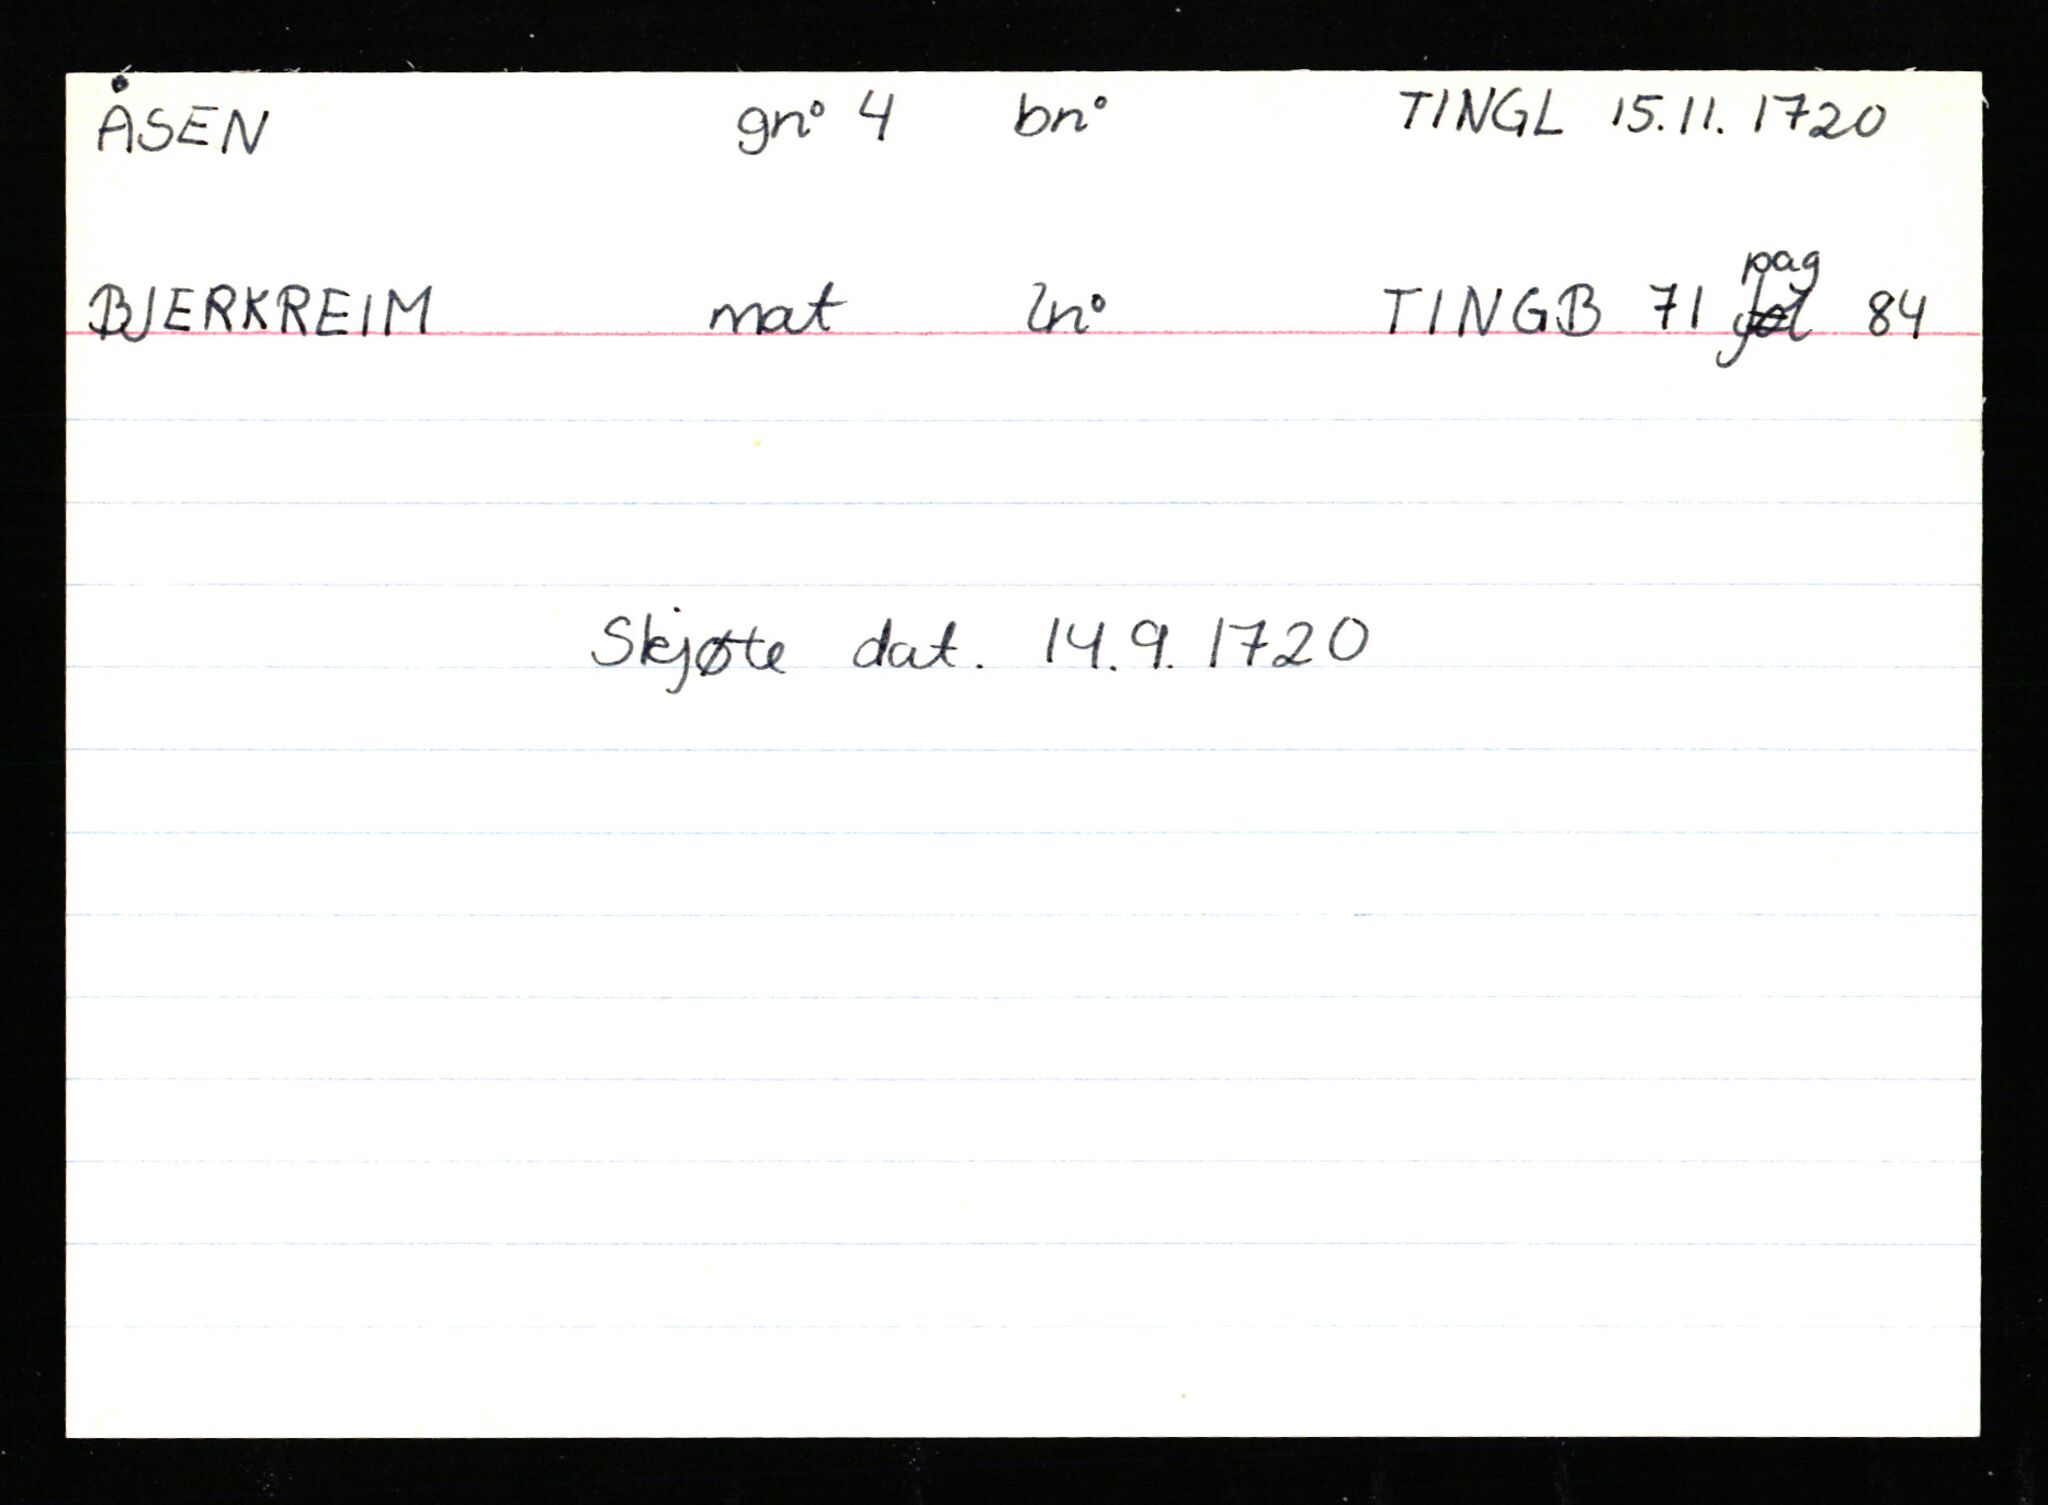 ÅSEN gn° 4 bn° TINGL 15.11.1720
pag
BJERKREIM mat ln° TINGB 71 fol 84
Skjøte dat. 14.9.1720